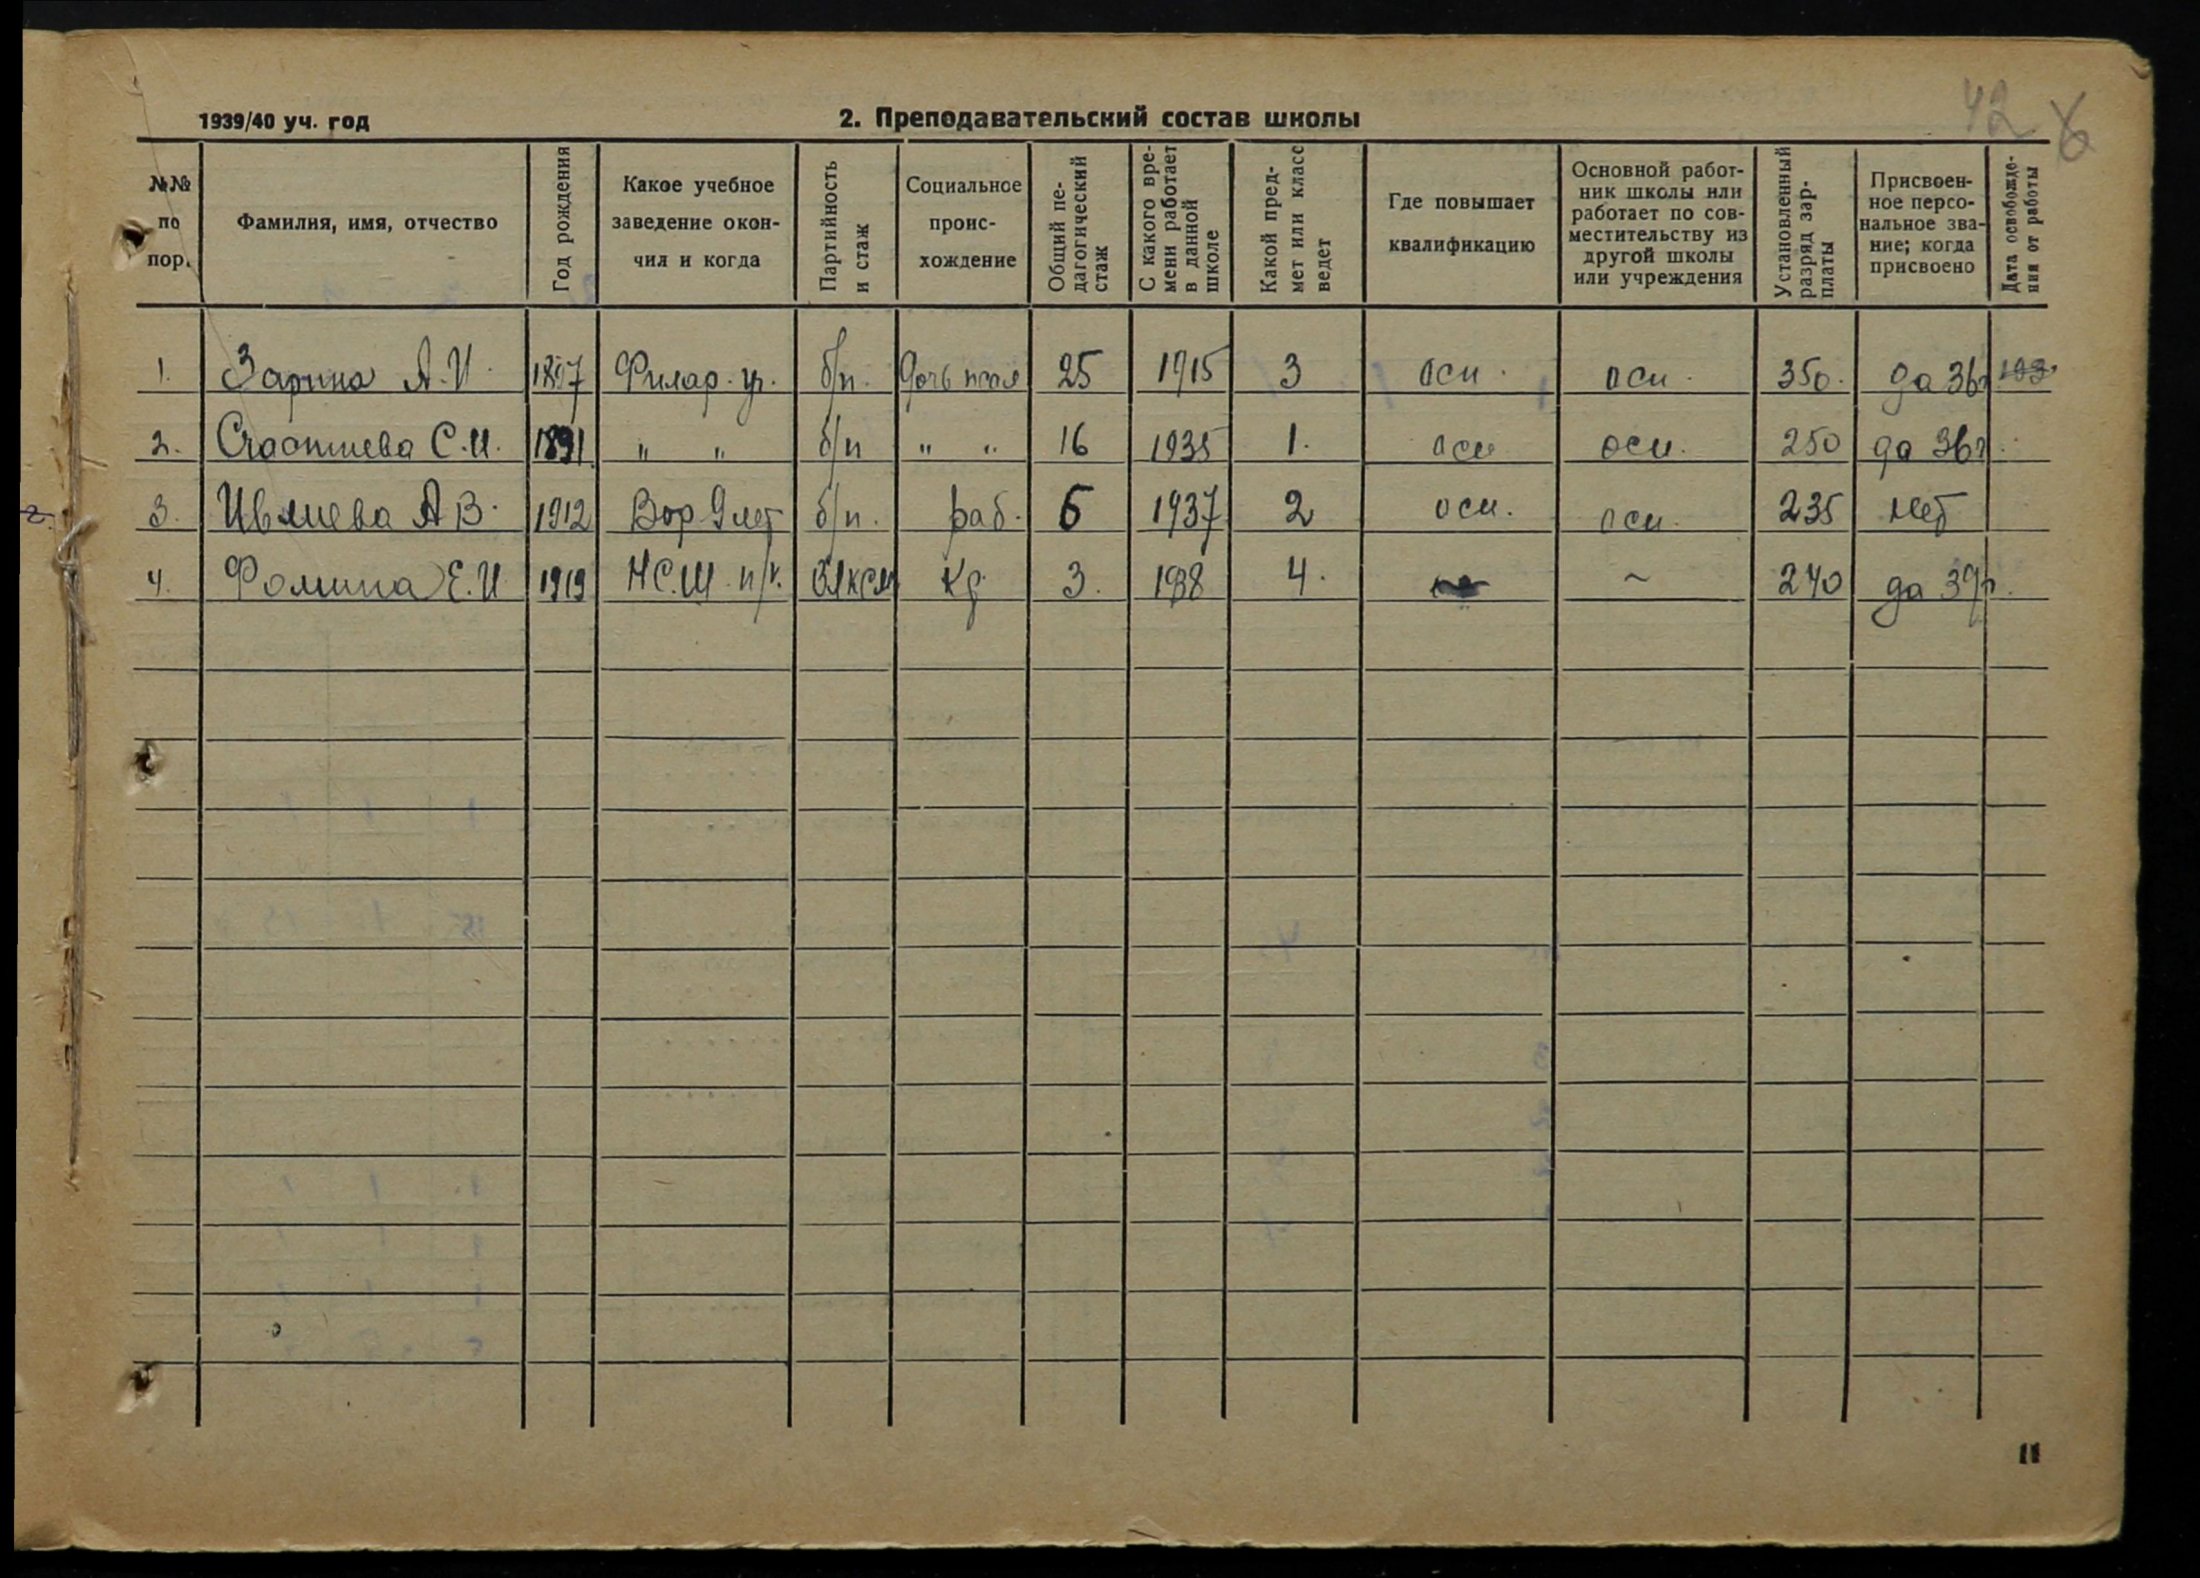 42 6
1939/40 уч. год
2. Преподавательский состав школы
№№ по пор.
Фамилия, имя, отчество
Год рождения
Какое учебное заведение окон-
чил и когда
Партийность и стаж
Социальное проис-
хождение
Общий пе-
дагогический стаж
С какого вре-
мени работает в данной школе
Какой пред-
мет или класс ведет
Где повышает квалификацию
Основной работ-
ник школы или работает по сов-
местительству из другой школы или учреждения
Установленный разряд зар-
платы
Присвоен-
ное персо-
нальное зва-
ние; когда присвоено
Дата освобожде-
ния от работы
1. Зарина А.И. 1897 Филар. уч. б/п. Дочь псал 25 1915 3 осн. осн. 350. да 36г
2. Счастнева С.И. 1891 " " б/п " " 16 1935 1. осн осн. 250 да 36г.
3. Ивлиева А В. 1912 Вор 9 лет б/п. раб. 6 1937 2 осн. осн. 235 нет
4. Фомина Е.И. 1919 Н.С.Ш. п/к. ВЛКСМ Кр 3. 1938 4. ~ 240 да 39г.
11